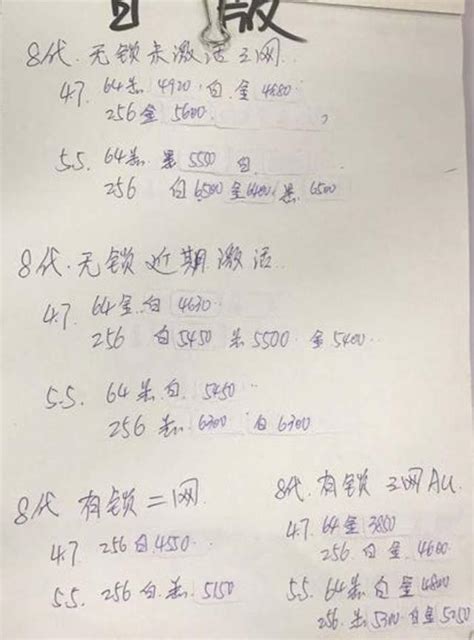 版
8代.无锁未激活三网.
4.7. 64黑 4920 白.金 4880
256 金 5600
5.5. 64黑. 黑 5500 白
256 白 6500 金 6400 黑 6500
8代.无锁近期激活..
4.7. 64金.白 4630
256 白 5450 黑 5500 金 5400
5.5. 64黑.白. 5450
256 黑. 6300 白 6300
8代 有锁二网.
4.7 256 白 4550
5.5. 256 白.黑. 5150
8代.有锁 三网AU.
4.7. 64金 3850
256. 白金. 4600
5.5. 64黑白金 4800
256. 黑 5300 白 5250